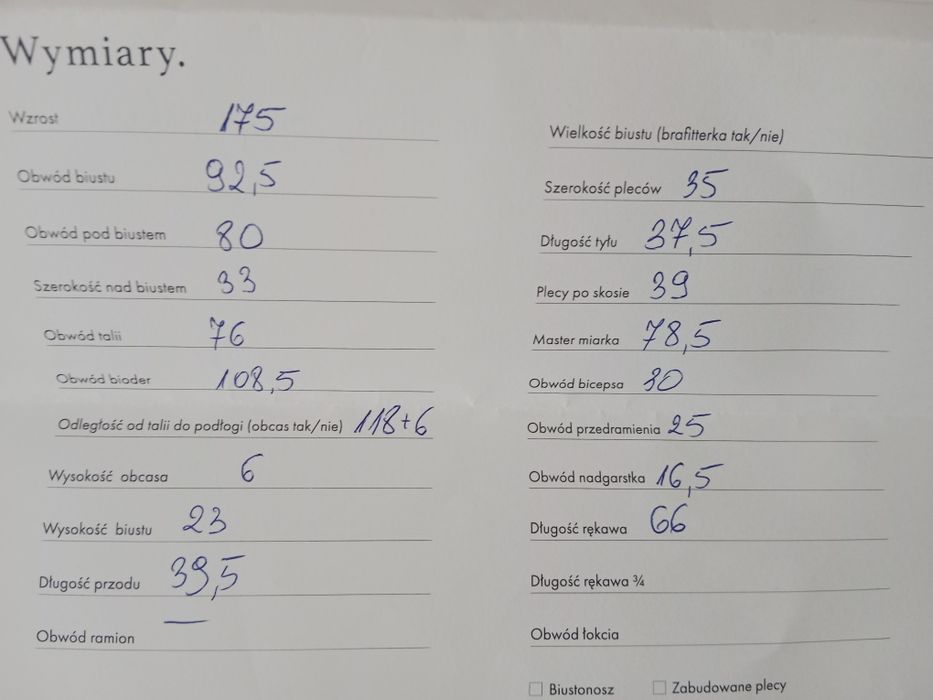 Wymiary.
Wzrost 175
Obwód biustu 92,5
Obwód pod biustem 80
Szerokość nad biustem 33
Obwód talii 76
Obwód bioder 108,5
Odległość od talii do podłogi (obcas tak/nie) 118+6
Wysokość obcasa 6
Wysokość biustu 23
Długość przodu 39,5
Obwód ramion —
Wielkość biustu (brafitterka tak/nie)
Szerokość pleców 35
Długość tyłu 37,5
Plecy po skosie 39
Master miarka 78,5
Obwód bicepsa 30
Obwód przedramienia 25
Obwód nadgarstka 16,5
Długość rękawa 66
Długość rękawa ¾
Obwód łokcia
Biustonosz
Zabudowane plecy